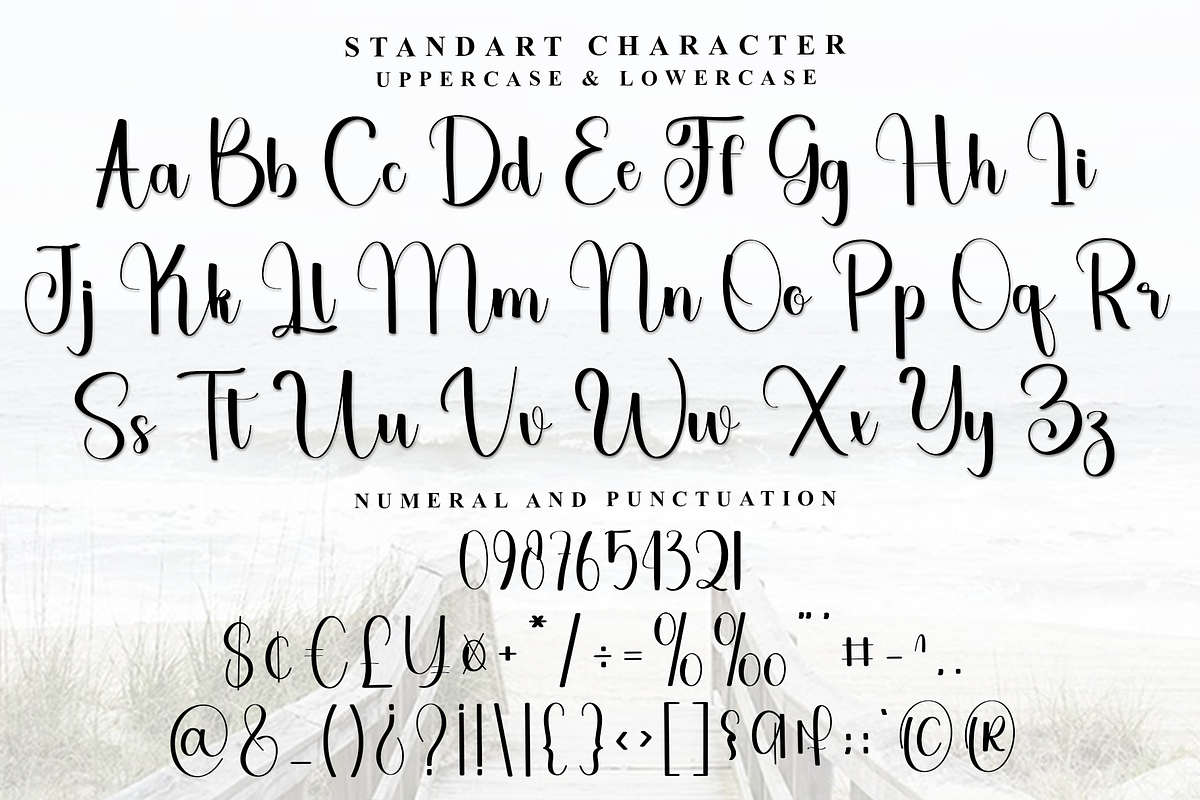 STANDART CHARACTER
UPPERCASE & LOWERCASE
Aa Bb Cc Dd Ee Ff Gg Hh Ii
Jj Kk Ll Mm Nn Oo Pp Oq Rr
Ss Tt Uu Vv Ww Xx Yy Zz
NUMERAL AND PUNCTUATION
0987654321
$¢€£¥ø+*/÷=%‰"'#-^,.
@&_()¿?¡!\|{}‹›[]:;`©®